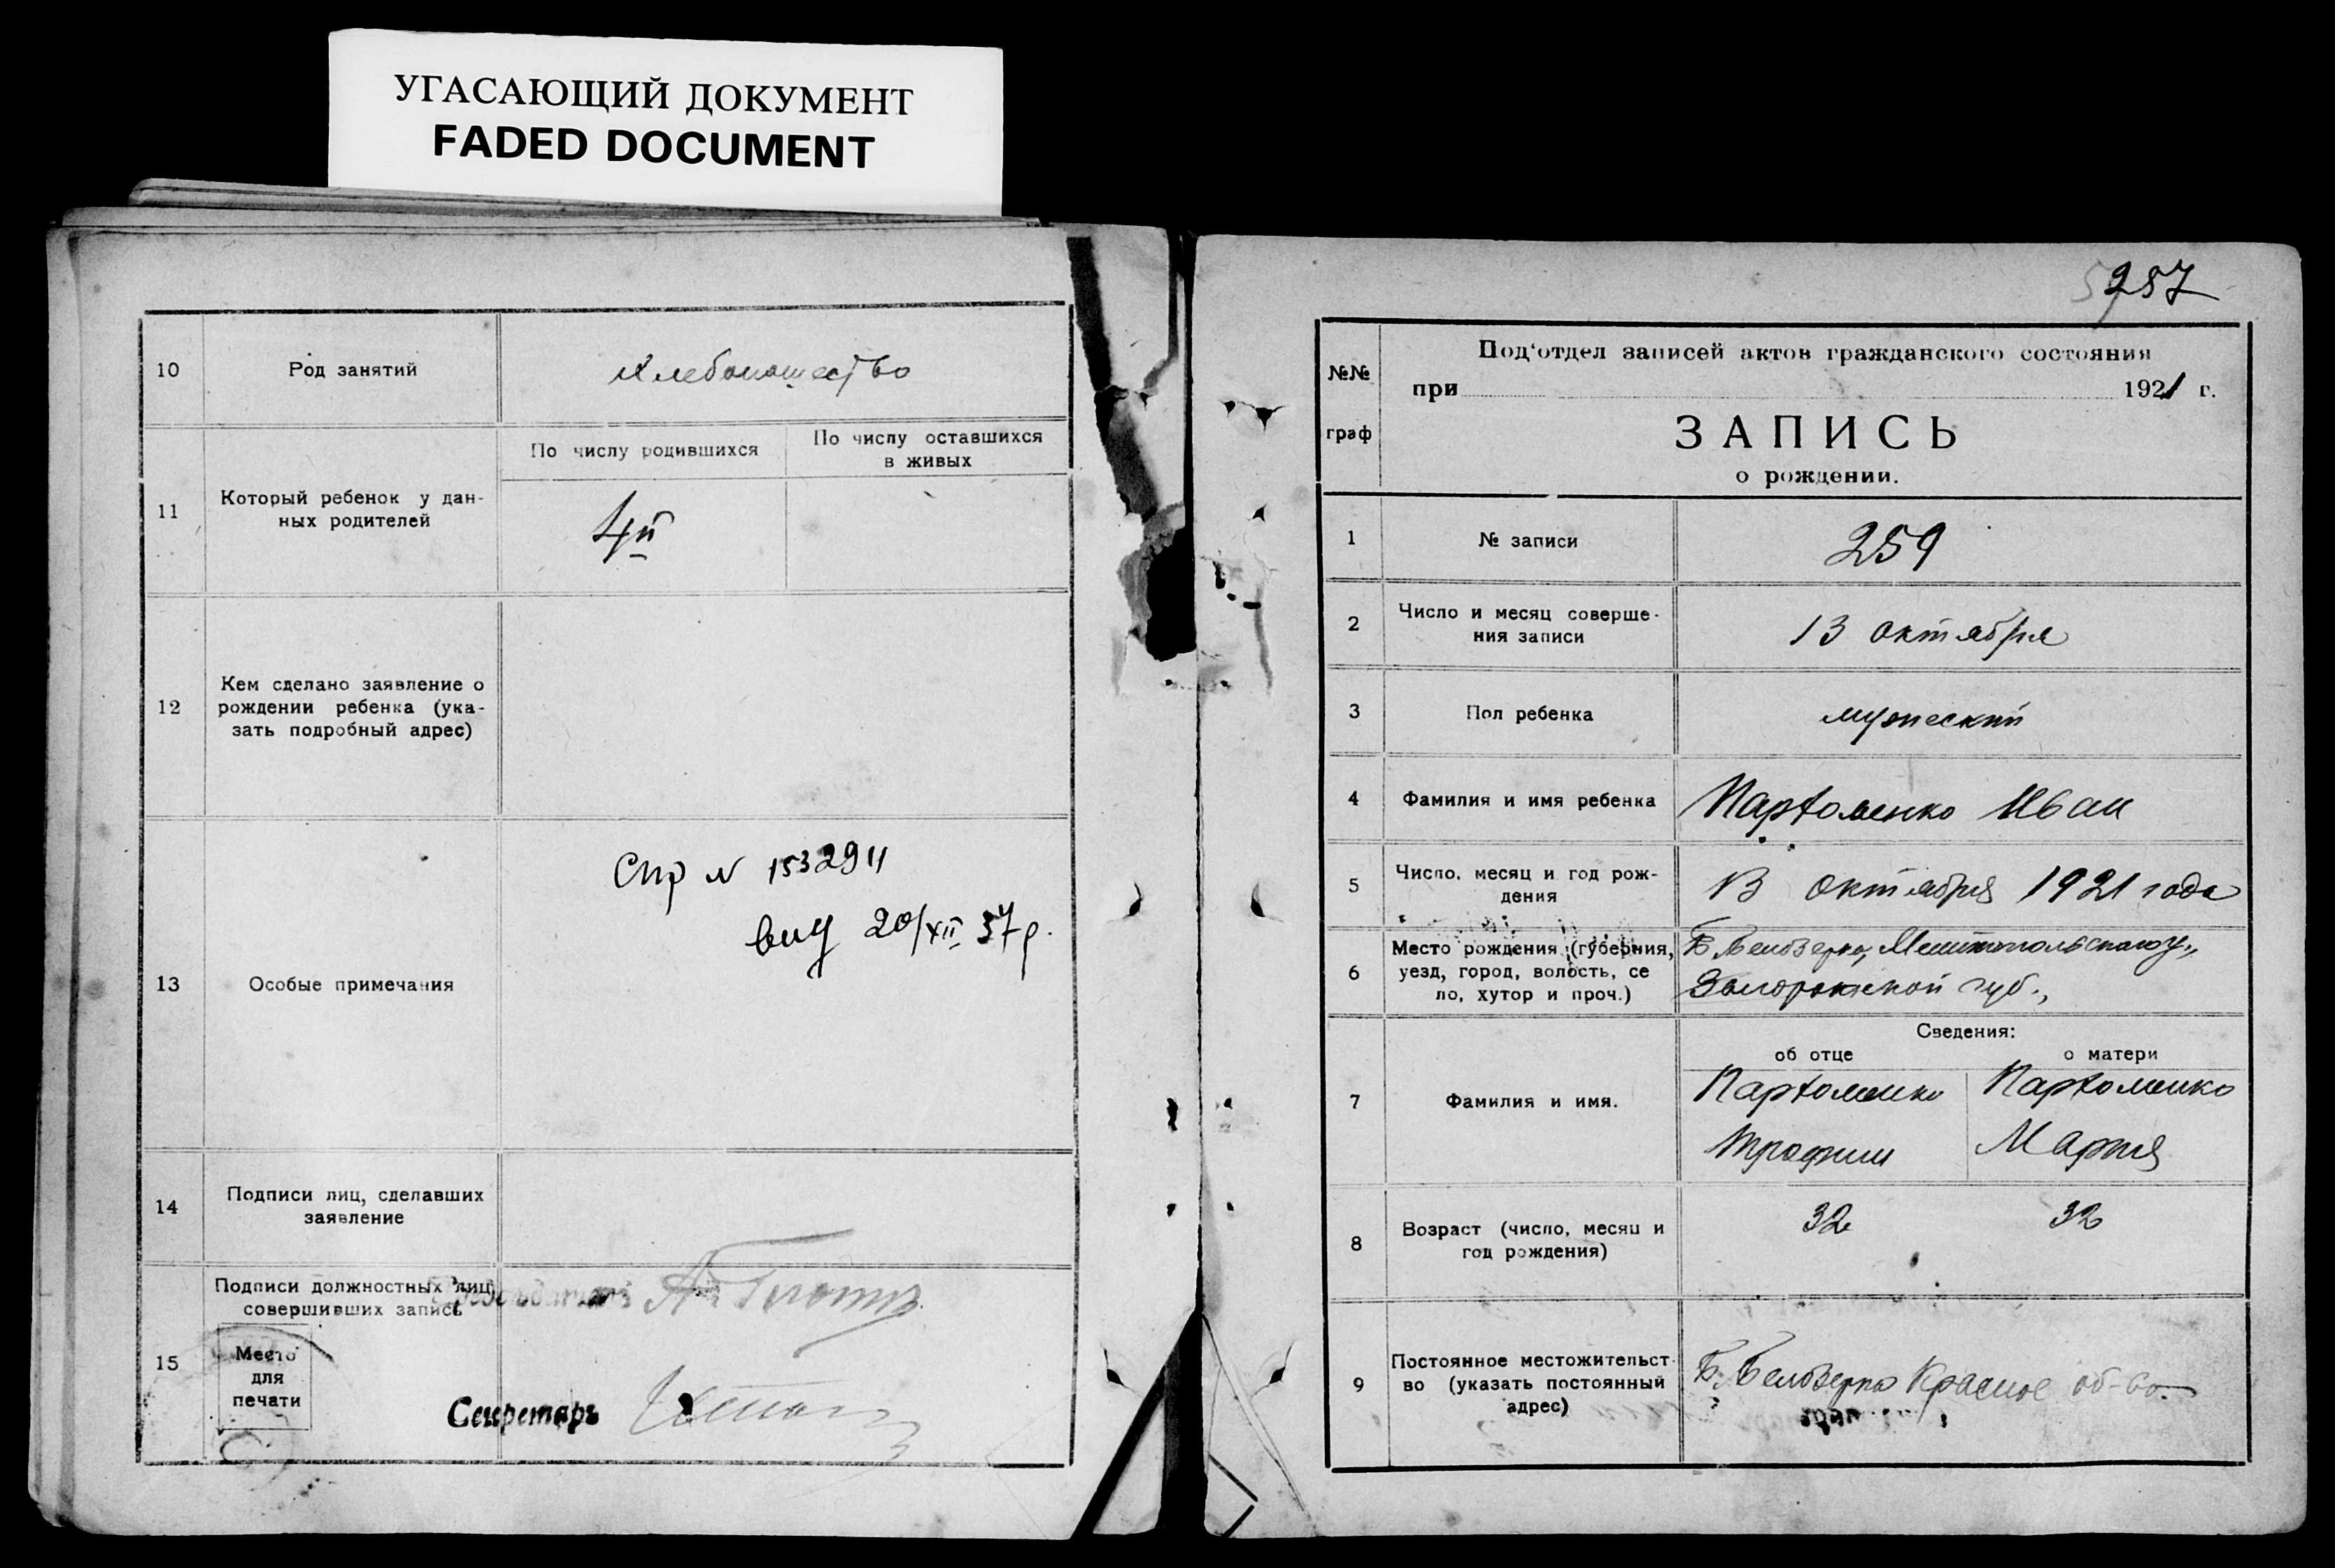 УГАСАЮЩИЙ ДОКУМЕНТ
FADED DOCUMENT
10
Род занятий
Хлебопашество
11
Который ребенок у дан-
ных родителей
По числу родившихся
По числу оставшихся
в живых
4й
12
Кем сделано заявление о
рождении ребенка (ука-
зать подробный адрес)
13
Особые примечания
Спр N 1532911
вид 20/XII 37 р.
14
Подписи лиц, сделавших
заявление
15
Подписи должностных лиц
совершивших запись
Место
для
печати
Секретарь
257
№№
граф
Под‘отдел записей актов гражданского состояния
при 1921 г.
ЗАПИСЬ
о рождении.
1
№ записи
259
2
Число и месяц соверше-
ния записи
13 октября
3
Пол ребенка
мужеский
4
Фамилия и имя ребенка
Пархоменко Иван
5
Число, месяц и год рож-
дения
13 октября 1921 года
6
Место рождения (губерния,
уезд, город, волость, се
ло, хутор и проч.)
Б. Белозерка, Мелитопольского у.,
Запорожской губ.,
Сведения:
об отце
о матери
7
Фамилия и имя.
Пархоменко
Трофим
Пархоменко
Мария
8
Возраст (число, месяц и
год рождения)
32
32
9
Постоянное местожительст-
во (указать постоянный
адрес)
Б. Белозерка Красное об-во.